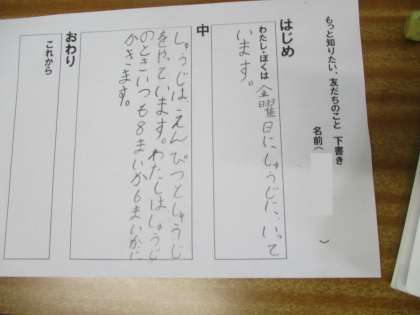 もっと知りたい、友だちのこと 下書き
名前( )
はじめ
わたし・ぼくは 金曜日にしゅうじに、いって
います。
中
しゅうじは、えんぴつとしゅうじ
をやています。わたしはしゅうじ
のときいつも8まいか6まいかに
かきます。
おわり
これから